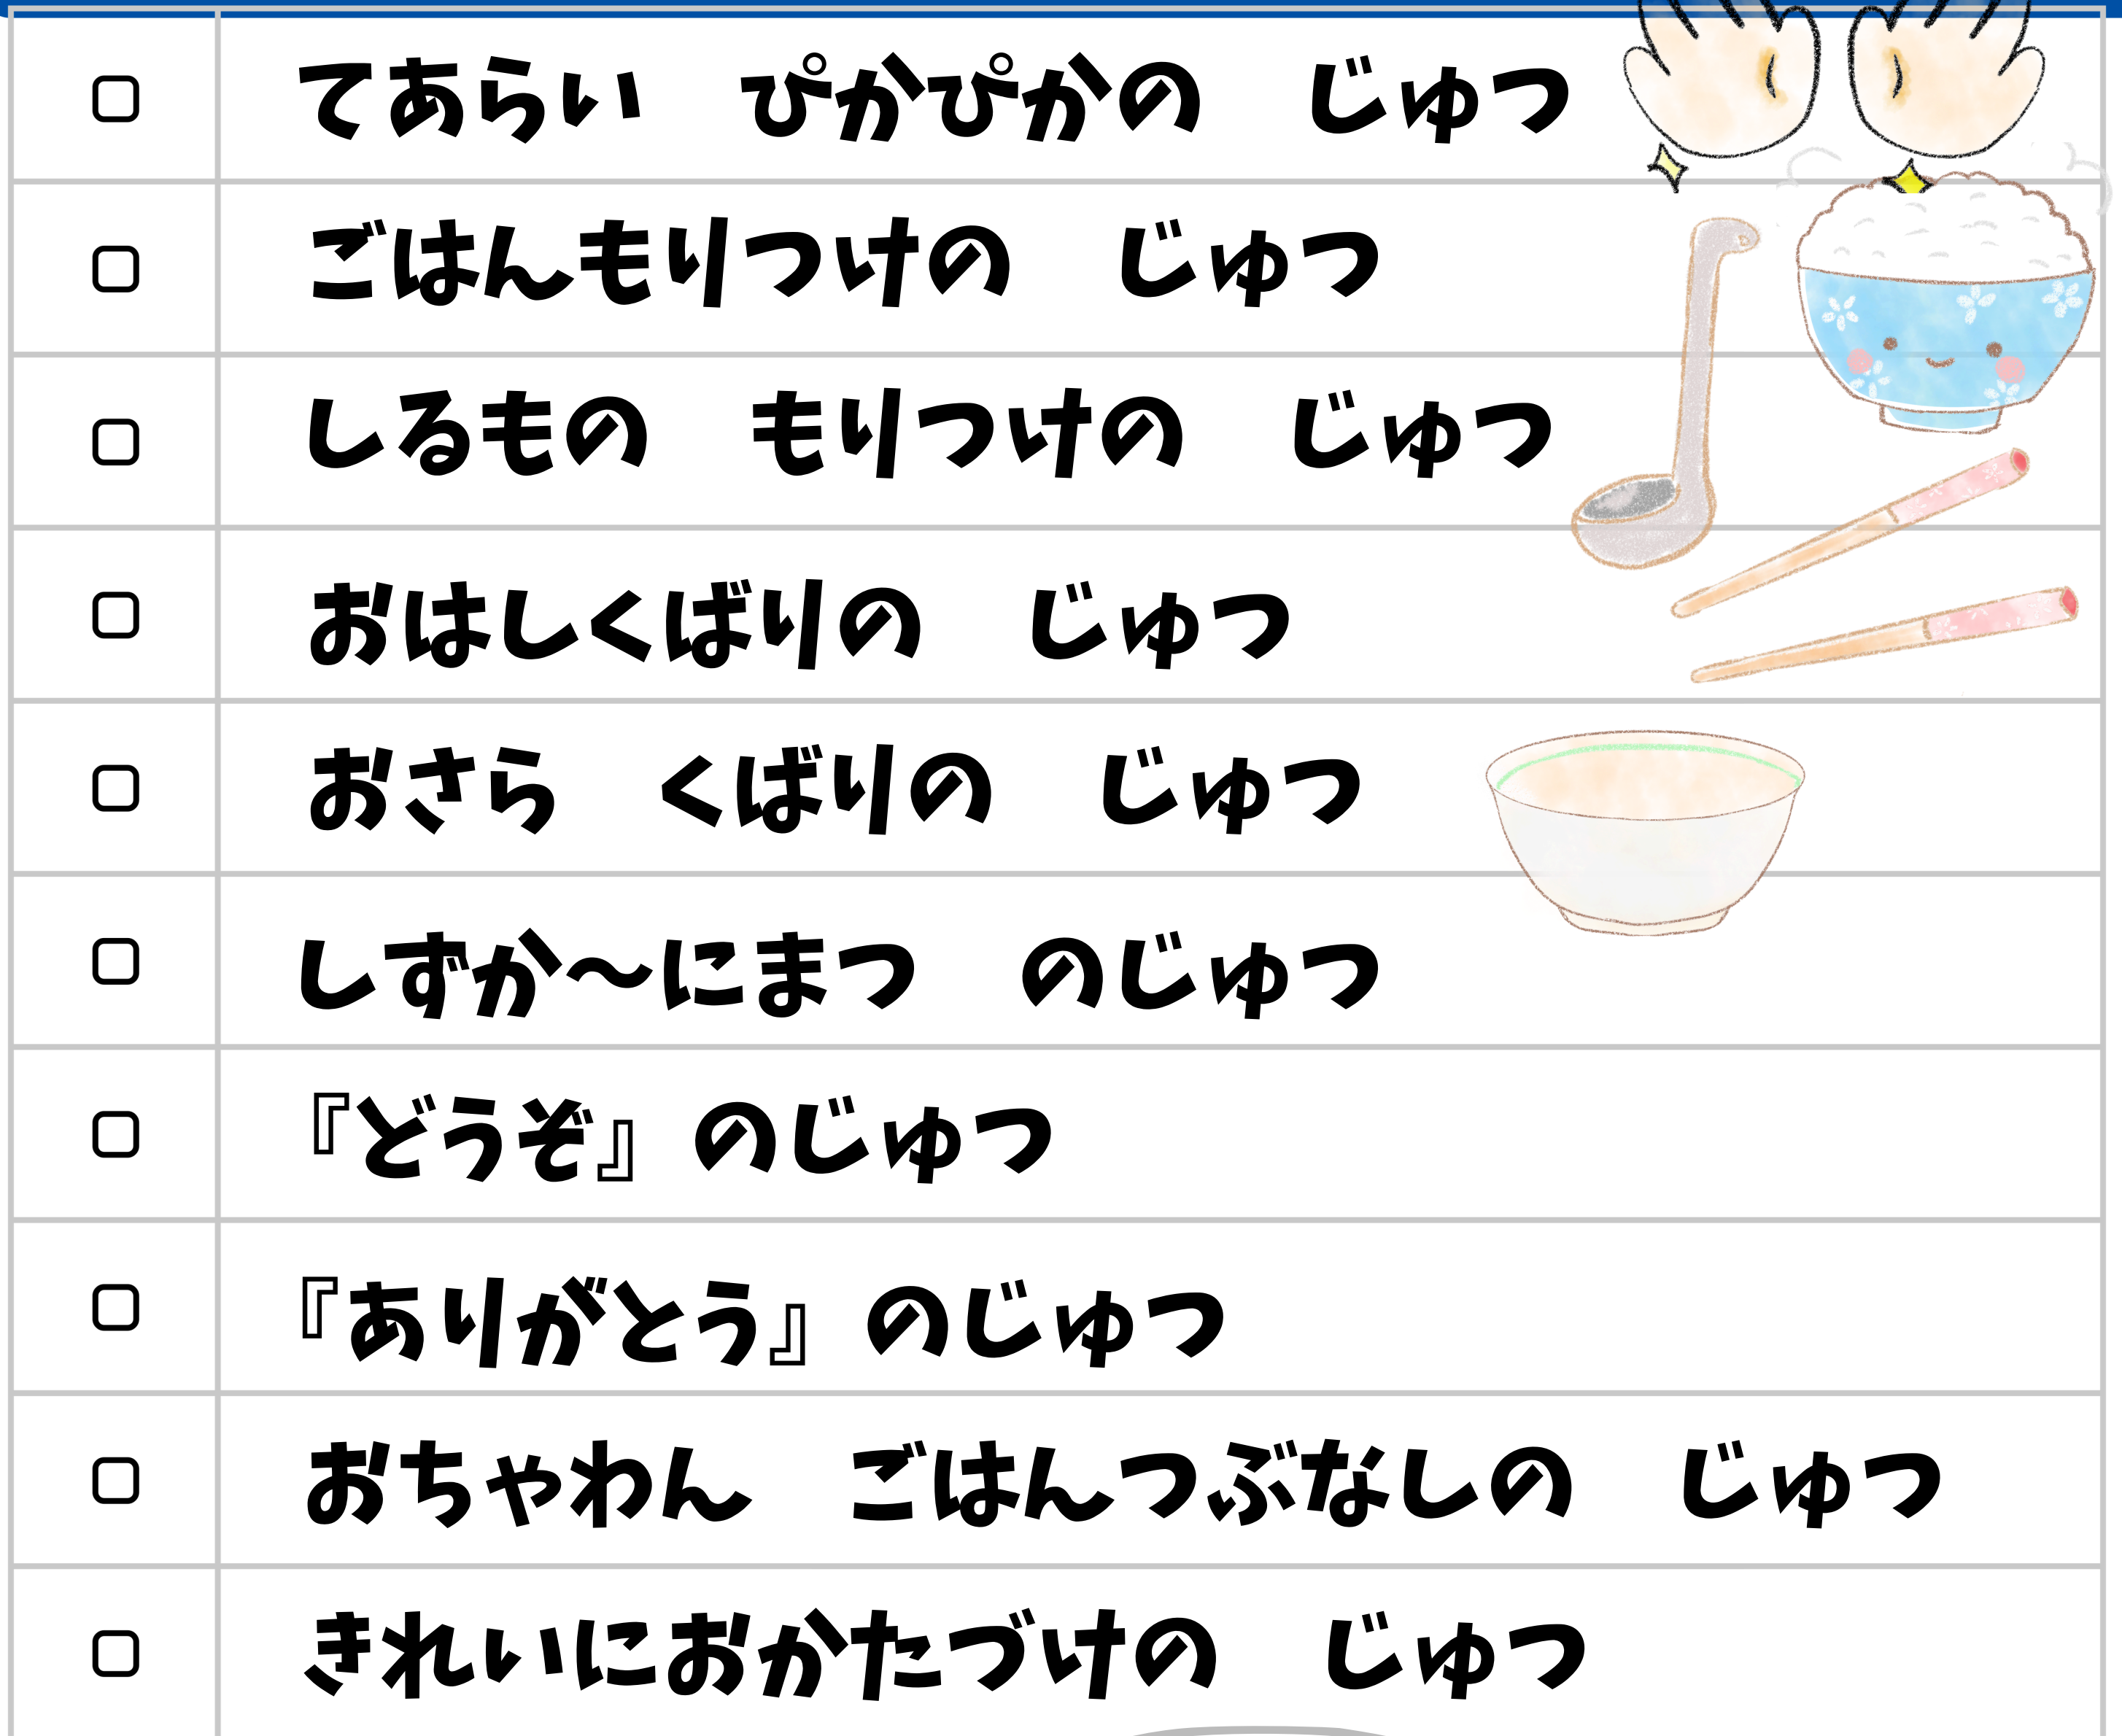 てあらい　ぴかぴかの　じゅつ
ごはんもりつけの　じゅつ
しるもの　もりつけの　じゅつ
おはしくばりの　じゅつ
おさら　くばりの　じゅつ
しずか〜にまつ　のじゅつ
『どうぞ』のじゅつ
『ありがとう』のじゅつ
おちゃわん　ごはんつぶなしの　じゅつ
きれいにおかたづけの　じゅつ